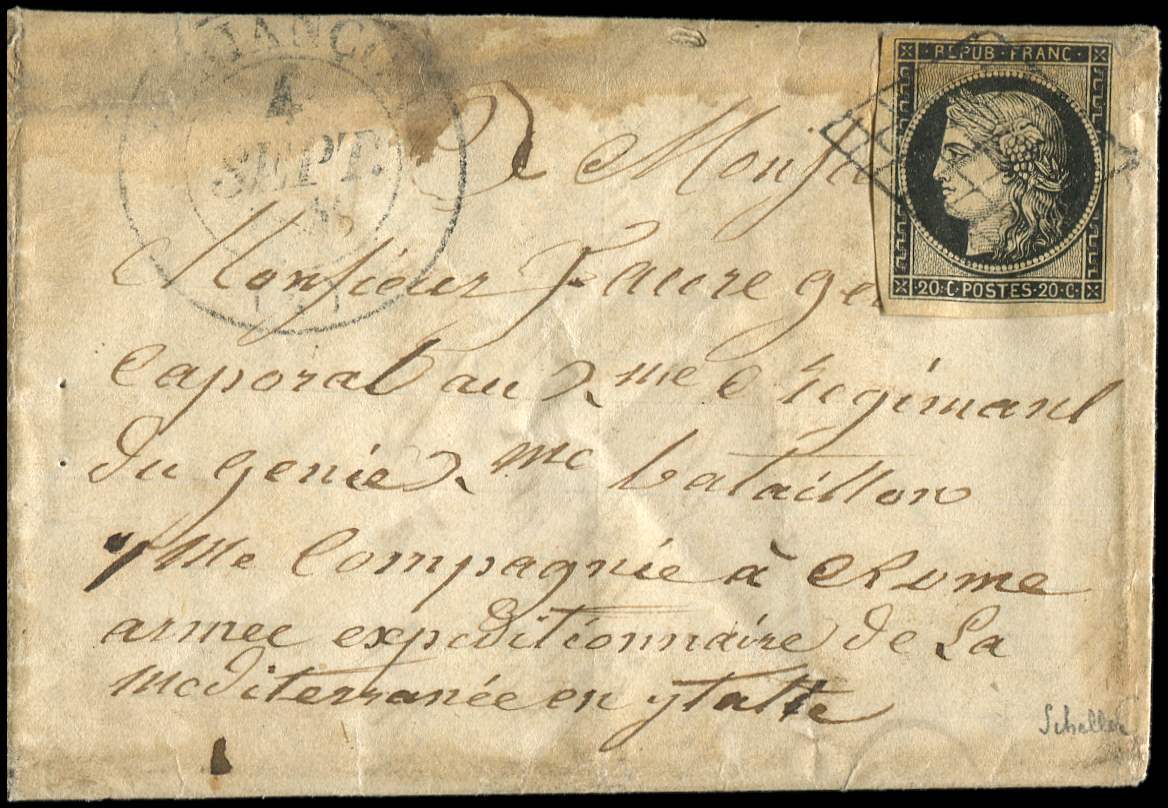 4
SEPT.
REPUB·FRANC·
20·C·POSTES·20·C·
Monsieur Faure
Caporal au 2me Regimant
du genie 2me bataillon
7me Compagnie à Rome
armee expeditionnaire de La
mediterranée en ytalie
Scheller